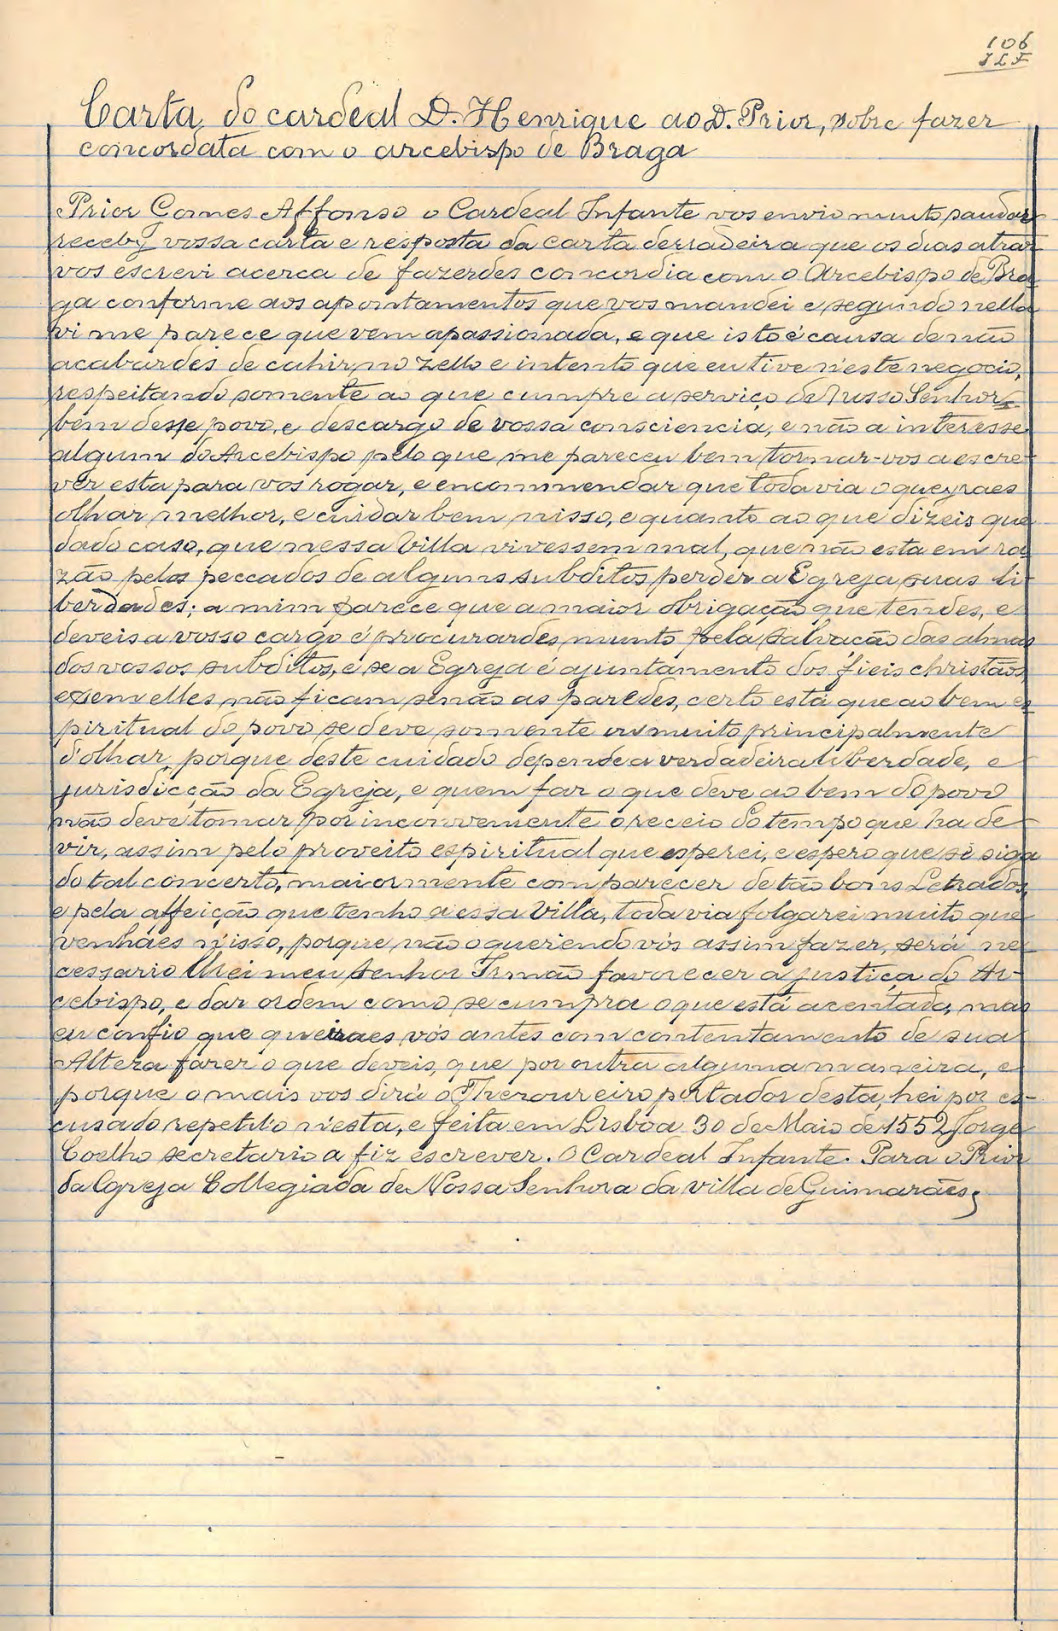 106
Carta do cardeal D. Henrique ao D. Prior, sobre fazer
concordata com o arcebispo de Braga
Prior Gomes Affonso o Cardeal Infante vos envio muito saudar
receby vossa carta e resposta da carta derradeira que os dias atraz
vos escrevi acerca de fazerdes concordia com o Arcebispo de Bra
ga conforme aos apontamentos que vos mandei e segundo nella
vi me parece que vem apassionada, e que isto é causa de não
acabardes de cahir, no zello e intento que eu tive n'este negocio,
respeitando somente ao que cumpre a serviço de Nosso Senhor
bem desse povo, e descargo de vossa consciencia, e não a interesse
algum do Arcebispo pelo que me pareceu bem tornar-vos a escre
ver esta para vos rogar, e encommendar que toda via o queyraes
olhar melhor, e cuidar bem nisso, e quanto ao que dizeis que
dado caso, que nessa Villa vivessem mal, que não esta em ra
zão pelos peccados de alguns subditos perder a Egreja suas li
berdades; a mim parece que a maior obrigação que tendes, e
deveis a vosso cargo é procurardes muito pela salvação das almas
dos vossos subditos, e se a Egreja é ajuntamento dos fieis christãos
e sem elles não ficam senão as paredes, certo está que ao bem es
piritual do povo se deve somente ou muito principalmente
d'olhar, porque deste cuidado depende a verdadeira liberdade, e
jurisdicção da Egreja, e quem far o que deve ao bem do povo
não deve tomar por inconveniente o receio do tempo que ha de
vir, assim pelo proveito espiritual que esperei, e espero que se siga
do tal concerto, maiormente com parecer de tão bons Letrados,
e pela affeição que tenho a essa Villa, toda via folgarei muito que
venháes n'isso, porque não o querendo vós assim fazer, será ne
cessario El rei meu Senhor Irmão favorecer a justiça do Ar-
cebispo, e dar ordem como se cumpra o que está acentado, mas
eu confio que queiraes vós antes com contentamento de sua
Alteza fazer o que deveis, que por outra alguma maneira, e
porque o mais vos dirá o Thezoureiro portador desta, hei por es-
cusado repetil'o n'esta, e feita em Lisboa 30 de Maio de 1552 Jorge
Coelho secretario a fiz escrever. O Cardeal Infante. Para o Prior
da Egreja Collegiada de Nossa Senhora da villa de Guimarães;